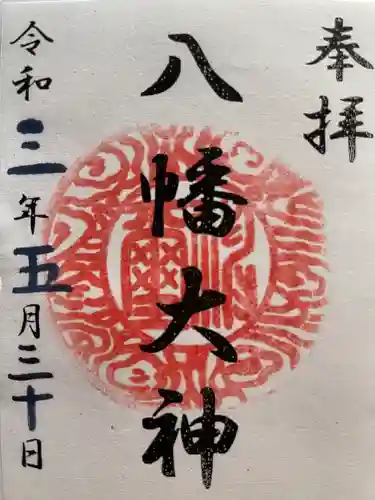 奉拝
八幡大神
令和三年五月三十日